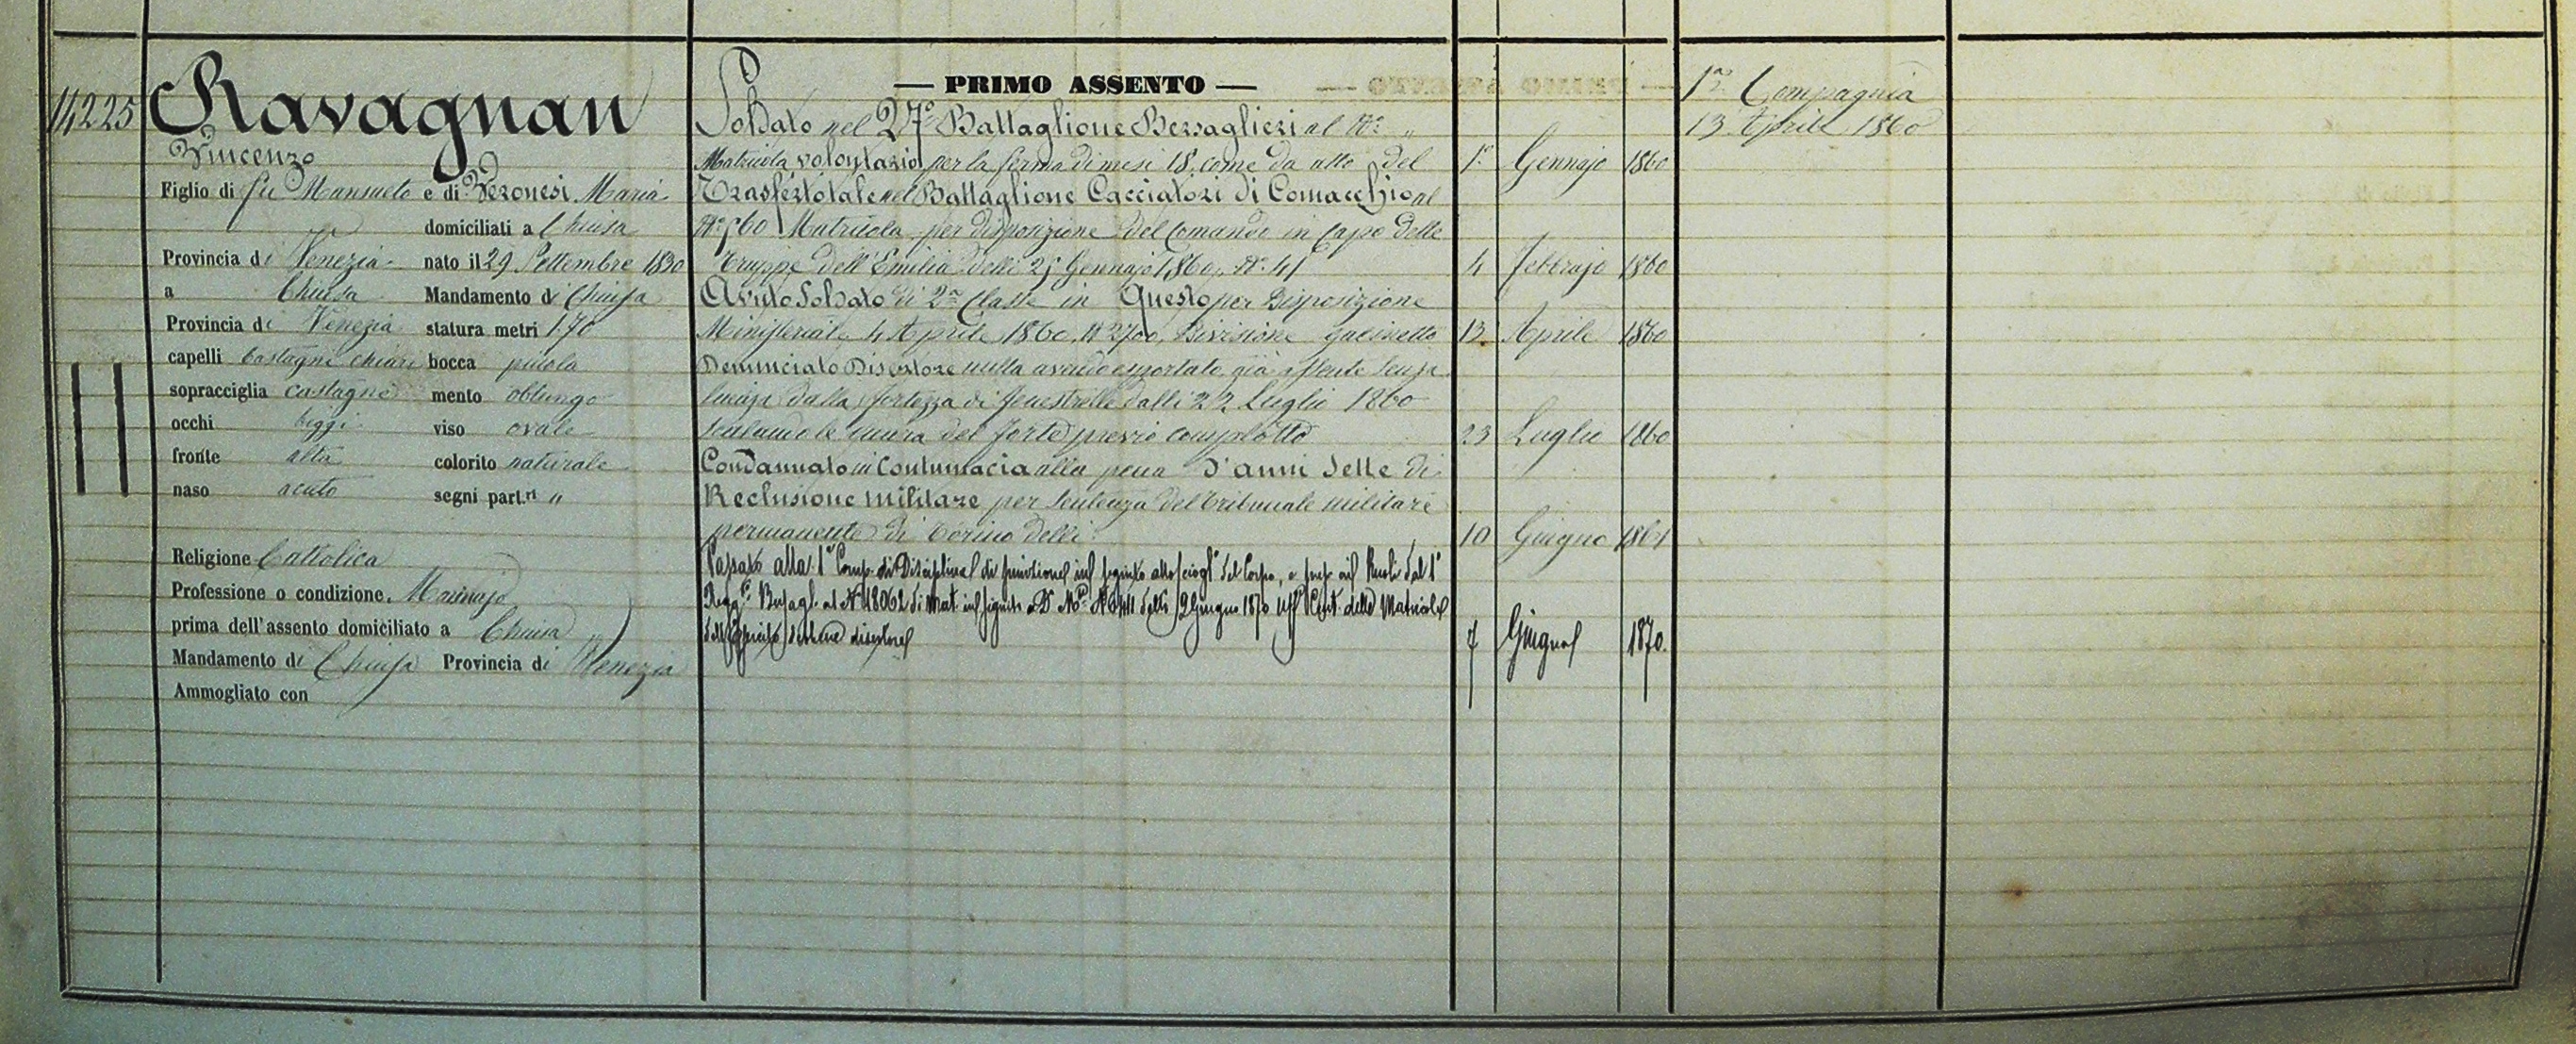 14225
Ravagnan
Vincenzo
Figlio di fu Mansueto e di Veronesi Maria
domiciliati a Chiusa
Provincia di Venezia nato il 29 Settembre 1830
a Chiusa Mandamento di Chiusa
Provincia di Venezia statura metri 1.70
capelli Castagni chiari bocca piccola
sopracciglia castagne mento oblungo
occhi biggi viso ovale
fronte alta colorito naturale
naso acuto segni part.ri "
Religione Cattolica
Professione o condizione
prima dell'assento domiciliato a Chiusa
Mandamento di Chiusa Provincia di Venezia
Ammogliato con
— PRIMO ASSENTO —
Soldato nel 27° Battaglione Bersaglieri al N° "
Matricola volontario per la ferma di mesi 18, come da atto del 1° Gennajo 1860
Trasferto tale nel Battaglione Cacciatori di Comacchio al
N° 560 Matricola per disposizione del Comando in Capo delle
Truppe dell'Emilia delli 25 Gennajo 1860, N° 41 4 Febbrajo 1860
Avuto Soldato di 2a Classe in Questo per Disposizione
Ministeriale 4 Aprile 1860, N 2700, Divisione Gabinetto 13 Aprile 1860
Denunciato Disertore nulla avendo esportato, già assente senza
licenza dalla fortezza di Fenestrelle dalli 22 Luglio 1860
scalando le mura del forte previo complotto 23 Luglio 1860
Condannato in Contumacia alla pena d'anni Sette di
Reclusione Militare per sentenza del tribunale militare
permanente di Torino delli 10 Giugno 1861
Passato alla 1a Comp. di Disciplina di punizione in seguito allo sciogl° del Corpo, e dal 1°
Regg° Bersagl. al N° 18062 di Mat. in seguito a N° 6411 delli 2 Giugno 1870 Uff° Cent. delle Matricole
dell'Esercito disertore 7 Giugno 1870.
1a Compagnia
13 Aprile 1860